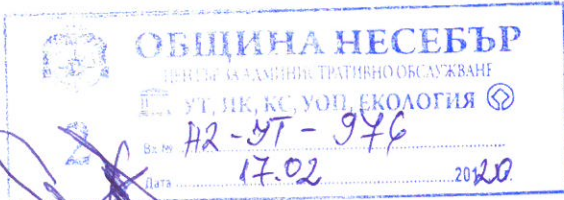 ОБЩИНА НЕСЕБЪР
ЦЕНТЪР ЗА АДМИНИСТРАТИВНО ОБСЛУЖВАНЕ
УТ, ЯК, КС, УОП, ЕКОЛОГИЯ
2
Вх № Н2-УТ-976
Дата 17.02 2020